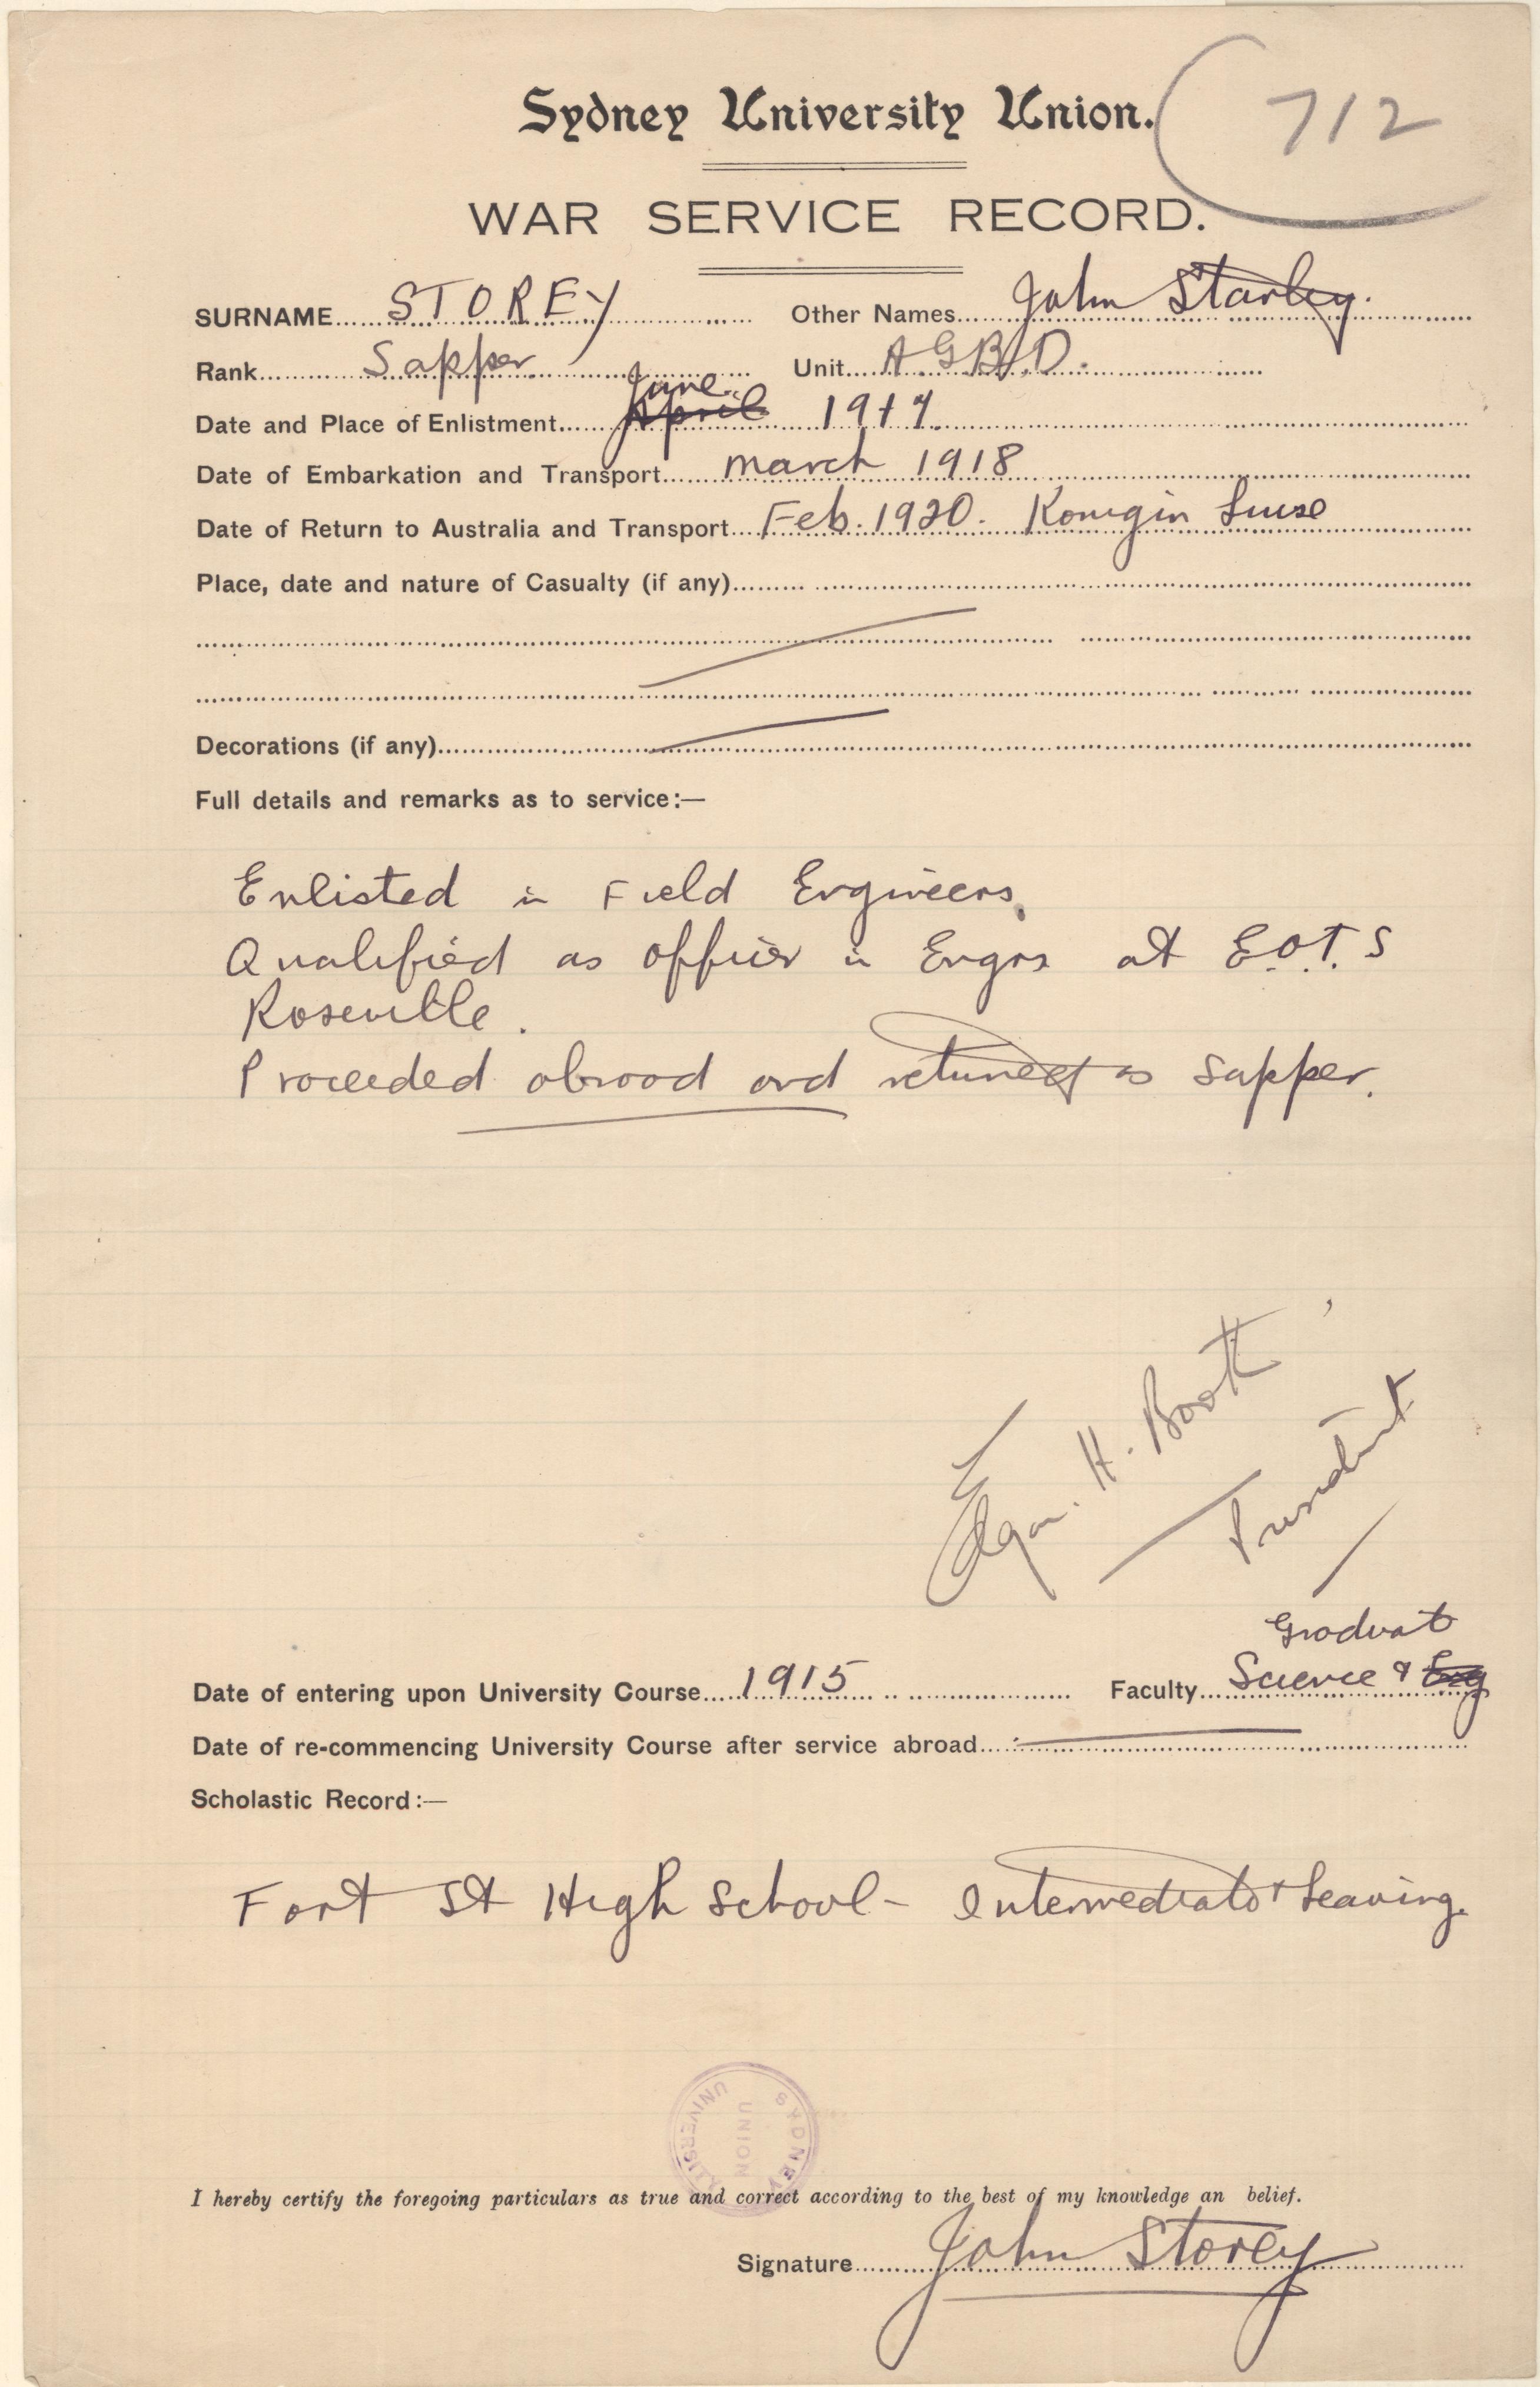 712
Sydney University Union.
WAR SERVICE RECORD.
SURNAME STOREY Other Names John Stanley.
Rank Sapper Unit A.G.B.D.
June
Date and Place of Enlistment April 1917.
Date of Embarkation and Transport March 1918
Date of Return to Australia and Transport Feb. 1920. Konigin Luise
Place, date and nature of Casualty (if any)
Decorations (if any)
Full details and remarks as to service:—
Enlisted in Field Engineers.
Qualified as officer in Engrs at E.O.T.S
Roseville.
Proceeded abroad and returned as Sapper.
Edgar. H. Booth
President
Graduate
Date of entering upon University Course 1915 Faculty Science & Eng
Date of re-commencing University Course after service abroad
Scholastic Record:—
Fort St High School - Intermediate & Leaving.
SYDNEY UNIVERSITY
UNION
I hereby certify the foregoing particulars as true and correct according to the best of my knowledge an belief.
Signature John Storey